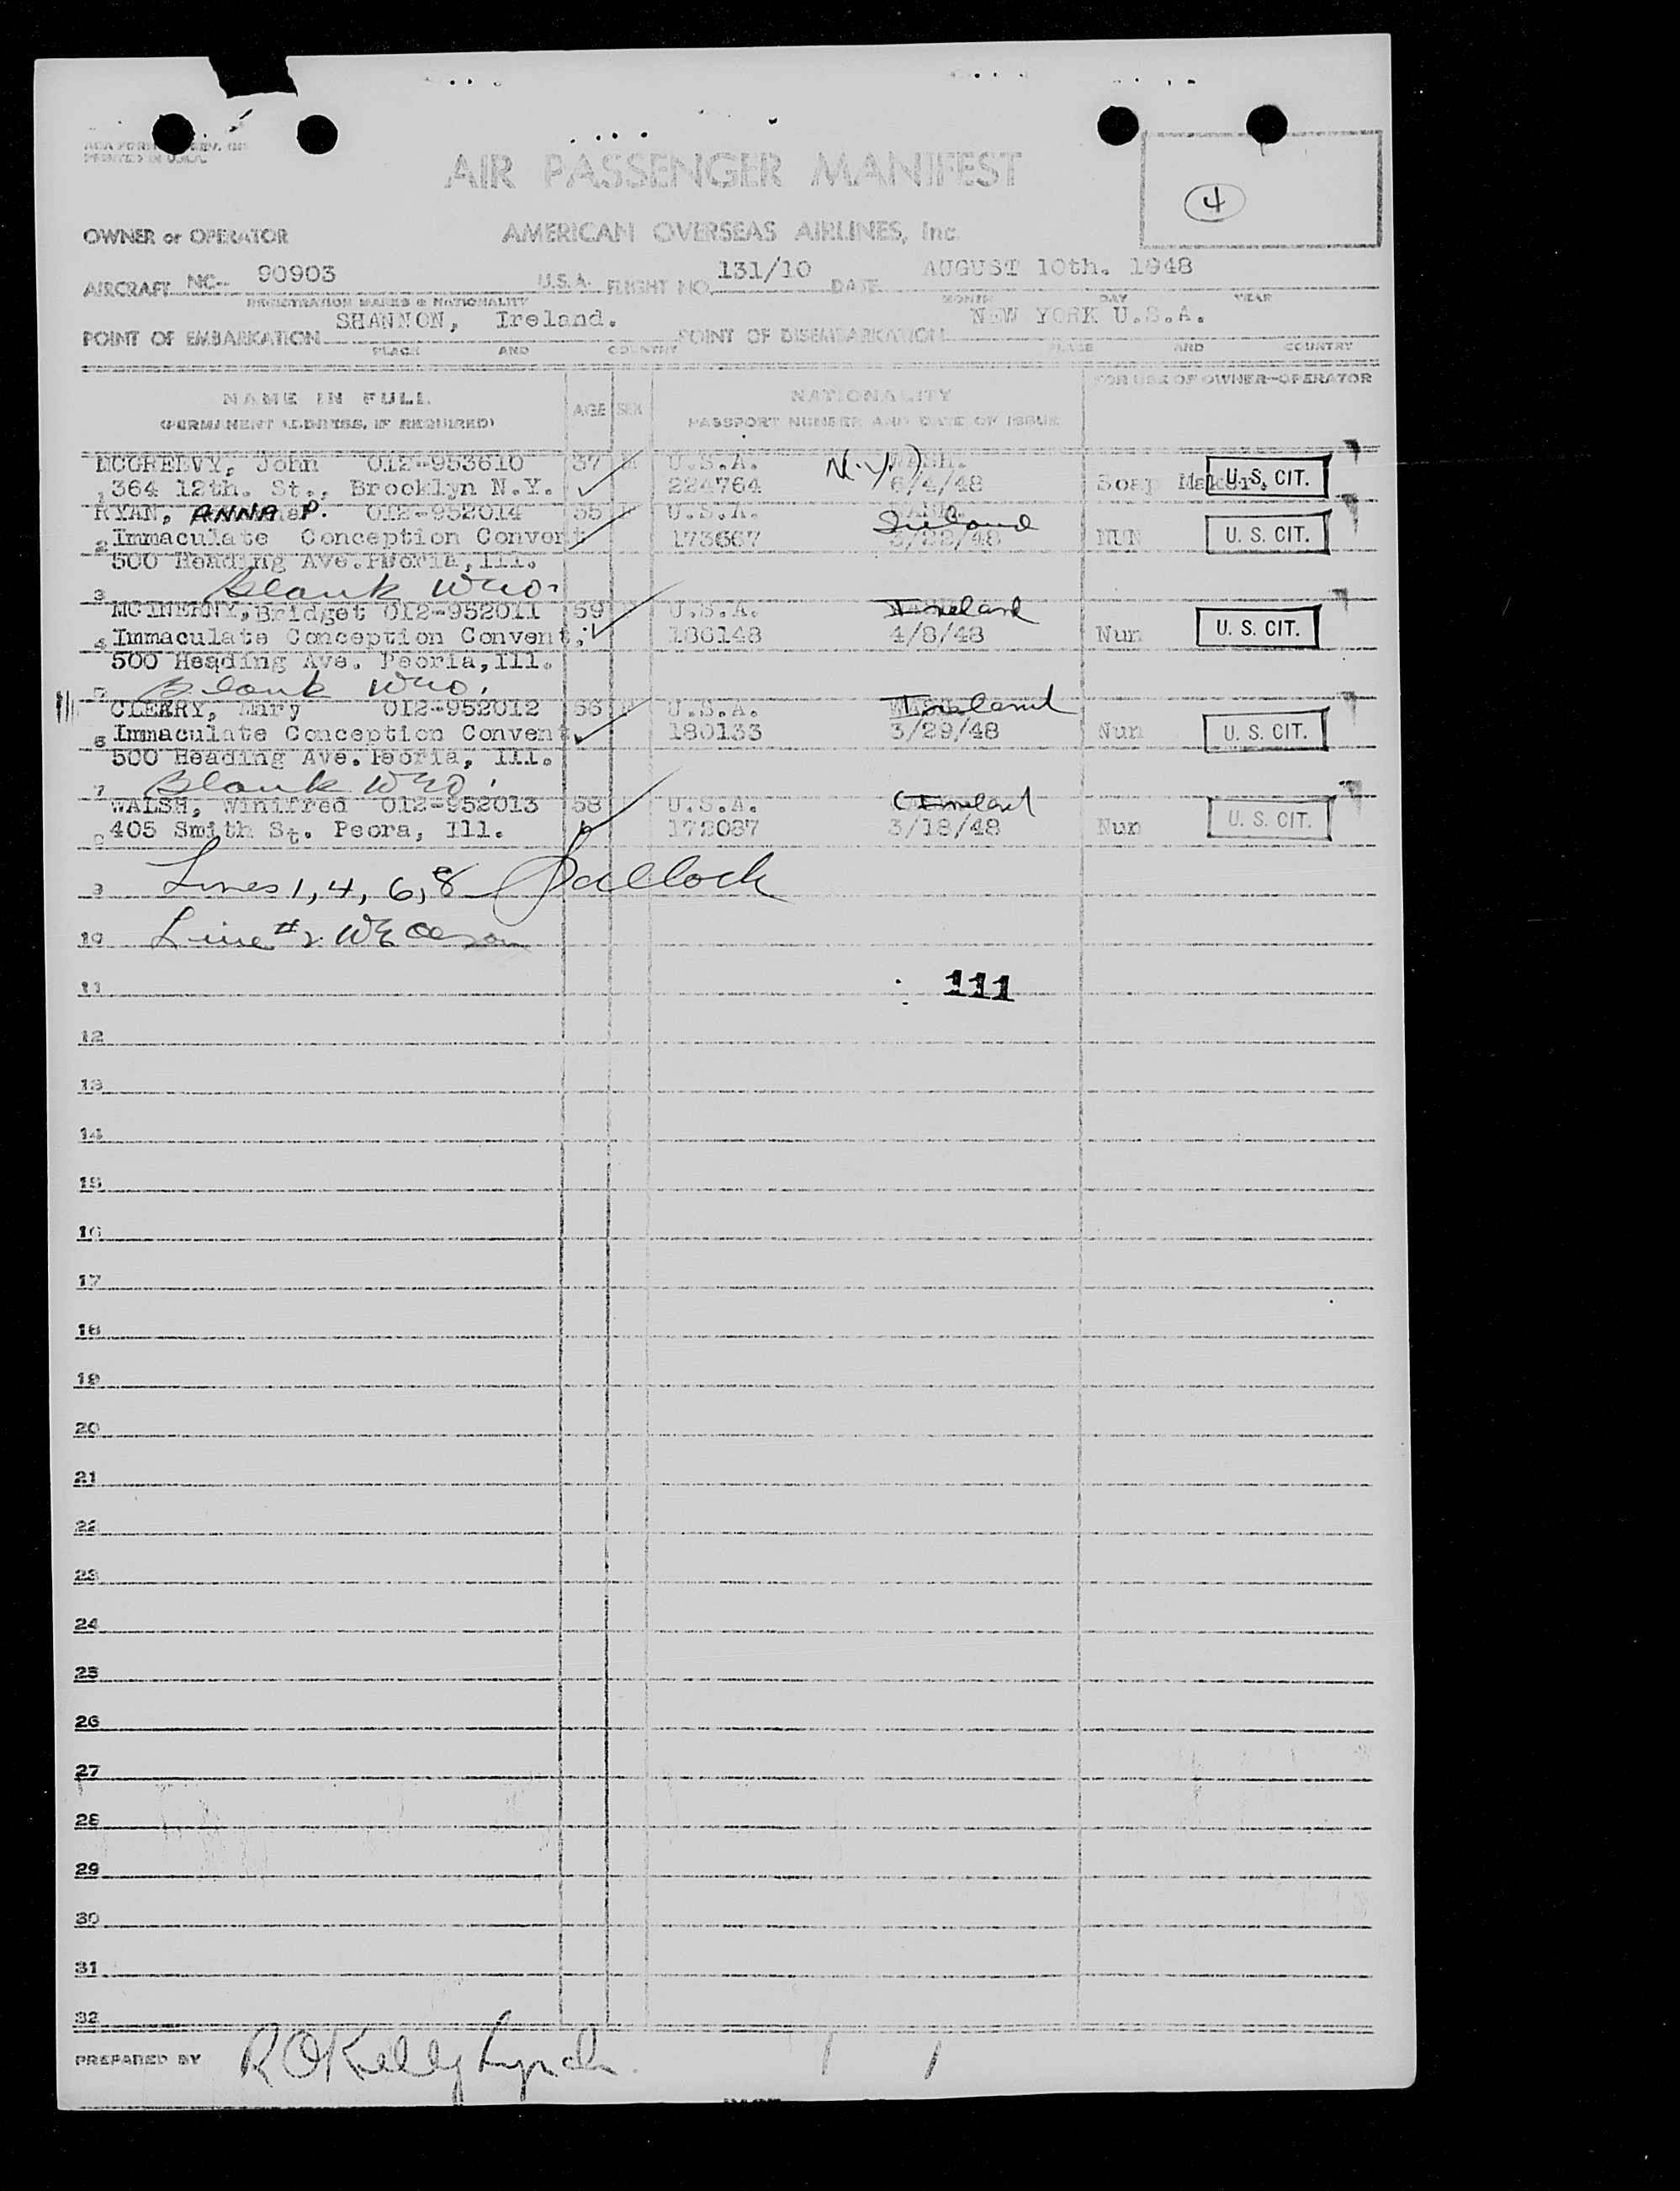 PRINTED IN U.S.A.
AIR PASSENGER MANIFEST
4
OWNER or OPERATOR AMERICAN OVERSEAS AIRLINES, Inc
AIRCRAFT NC- 90903 U.S.A. FLIGHT NO. 131/10 DATE AUGUST 10th. 1948
REGISTRATION MARKS & NATIONALITY MONTH DAY YEAR
POINT OF EMBARKATION SHANNON, Ireland. POINT OF DISEMBARKATION NEW YORK U.S.A.
PLACE AND COUNTRY PLACE AND COUNTRY
NAME IN FULL AGE SEX NATIONALITY FOR USE OF OWNER-OPERATOR
(PERMANENT ADDRESS, IF REQUIRED) PASSPORT NUMBER AND DATE OF ISSUE
MCGREEVY, John 012-953610 37 M U.S.A. N.Y. WASH.
1 364 12th. St., Brooklyn N.Y. 224764 6/4/48 Soap Maker. U.S. CIT.
RYAN, ANNA P. 012-952014 55 U.S.A. Ireland
2 Immaculate Conception Convent 173667 3/22/48 NUN U. S. CIT.
500 Heading Ave. Peoria, Ill.
3 Blank
MCINERNY, Bridget 012-952011 59 U.S.A. Ireland
4 Immaculate Conception Convent, 186148 4/8/48 Nun U. S. CIT.
500 Heading Ave. Peoria, Ill.
5 Blank
CLEARY, Mary 012-952012 56 U.S.A. Ireland
6 Immaculate Conception Convent 180133 3/29/48 Nun U. S. CIT.
500 Heading Ave. Peoria, Ill.
7 Blank
WALSH, Winifred 012-952013 58 U.S.A. Ireland
8 405 Smith St. Peora, Ill. 172087 3/18/48 Nun U. S. CIT.
9 Lines 1, 4, 6, 8
10 Line #2
11 111
12
13
14
15
16
17
18
19
20
21
22
23
24
25
26
27
28
29
30
31
32
PREPARED BY R O'Kelly Lynch